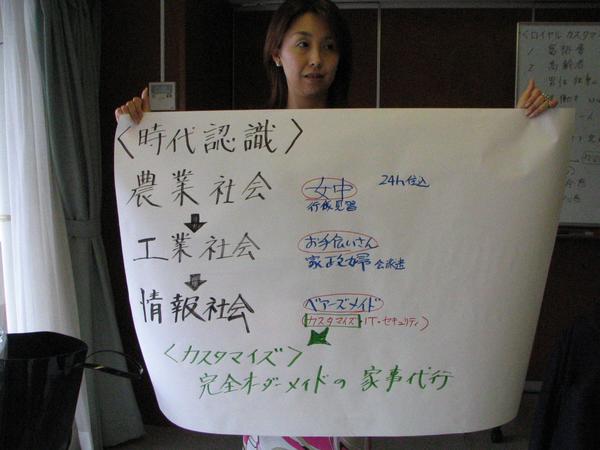 〈時代認識〉
農業社会
女中
24h 仕込
行儀見習
工業社会
お手伝いさん
家政婦 会派遣
情報社会
ベアーズメイド
カスタマイズ・IT・セキュリティ)
〈カスタマイズ〉
完全オーダーメイドの 家事代行
〈ロイヤル カスタマ
1 富裕層
2 高齢者